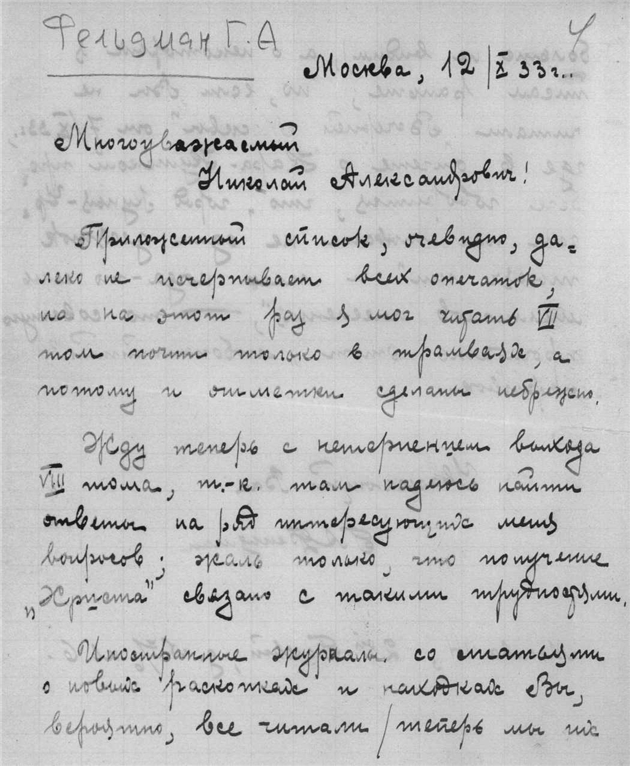 Фельдман Г. А
Москва, 12/X 33 г..
Многоуважаемый
Николай Александрович!
Приложенный список, очевидно, да=
леко не исчерпывает всех опечаток,
на на этот раз я мог читать VII
том почти только в трамваях, а
потому и отметки сделаны небрежно.
Жду теперь с нетерпением выхода
VIII тома, т.-к. там надеюсь найти
ответы на ряд интересующих меня
вопросов; жаль только, что получение
„Христа" связано с такими трудностями.
Иностранные журналы со статьями
о новых раскопках и находках Вы,
вероятно, все читали /теперь мы их